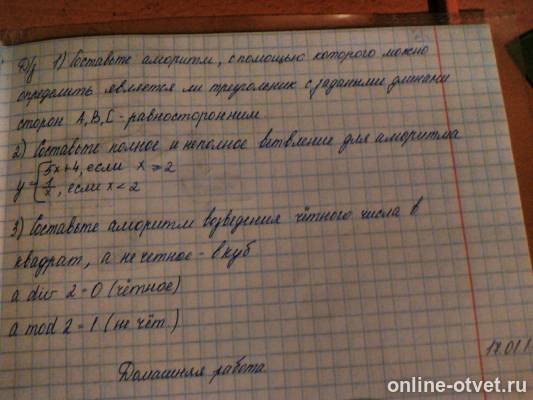 Д/з 1) Составьте алгоритм, с помощью которого можно
определить является ли треугольник с заданными длинами
сторон А, В, С - равносторонним
2) Составьте полное и неполное ветвление для алгоритма
y = { 5x+4, если x ≥ 2
1/x, если x < 2
3) Составьте алгоритм возведения чётного числа в
квадрат, а не четное - в куб
a div 2 = 0 (чётное)
a mod 2 = 1 (не чёт.)
Домашняя работа
online-otvet.ru